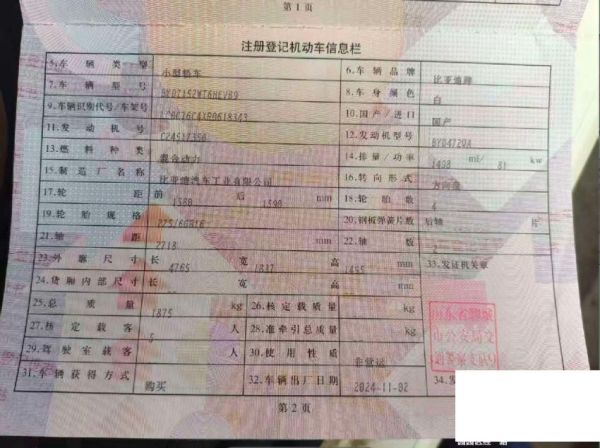 第 1 页
注册登记机动车信息栏
5.车 辆 类 型 小型轿车 6.车 辆 品 牌 比亚迪牌
7.车 辆 型 号 BYD7152WT6HEVB9 8.车 身 颜 色 白
9.车辆识别代号/车架号 10.国 产/进 口 国产
11.发 动 机 号 12.发动机型号 BYD472QA
13.燃 料 种 类 混合动力 14.排 量/功 率 1498 ml/ 81 kw
15.制 造 厂 名 称 比亚迪汽车工业有限公司 16.转 向 形 式 方向盘
17.轮 距 前 1580 后 1590 mm 18.轮 胎 数 4
19.轮 胎 规 格 225/60R16 20.钢板弹簧片数 后轴 片
21.轴 距 2718 mm 22.轴 数 2
23.外 廓 尺 寸 长 4765 宽 1837 高 1495 mm 33.发证机关章
24.货厢内部尺寸 长 宽 高 mm
25.总 质 量 1875 kg 26.核定载质量 kg
27.核 定 载 客 5 人 28.准牵引总质量 kg
29.驾 驶 室 载 客 人 30.使 用 性 质 非营运
31.车 辆 获 得 方 式 购买 32.车 辆 出 厂 日 期 2024-11-02 34.发
第 2 页